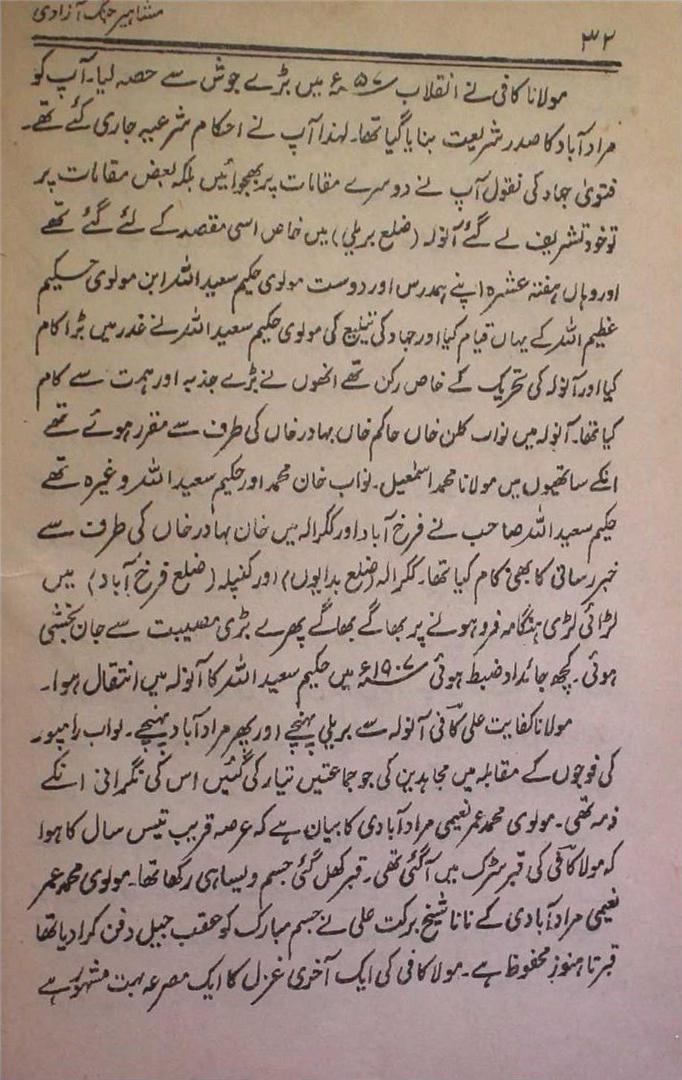 مشاہیر جنگ آزادی
۳۲
مولانا کافی نے انقلاب ۵۷ء میں بڑے جوش سے حصہ لیا۔ آپ کو
مرادآباد کا صدر شریعت بنایا گیا تھا۔ لہذا آپ نے احکام شرعیہ جاری کئے تھے۔
فتویٰ جہاد کی نقول آپ نے دوسرے مقامات پر بھجوائیں بلکہ بعض مقامات پر
تو خود تشریف لے گئے آنولہ (ضلع بریلی) میں خاص اسی مقصد کے لئے گئے تھے
اور وہاں ہفتہ عشرہ اپنے ہمدرس اور دوست مولوی حکیم سعید اللہ ابن مولوی حکیم
عظیم اللہ کے یہاں قیام کیا اور جہاد کی تبلیغ کی مولوی حکیم سعید اللہ نے غدر میں بڑا کام
کیا اور آنولہ کی تحریک کے خاص رکن تھے انھوں نے بڑے جذبہ اور ہمت سے کام
کیا تھا۔ آنولہ میں نواب کلن خاں حاکم خاں بہادر خاں کی طرف سے مقرر ہوئے تھے
انکے ساتھیوں میں مولانا محمد اسمٰعیل۔ نواب خان محمد اور حکیم سعید اللہ وغیرہ تھے
حکیم سعید اللہ صاحب نے فرخ آباد اور ککرالہ میں خان بہادر خاں کی طرف سے
خبر رسانی کا بھی کام کیا تھا۔ ککرالہ (ضلع بدایوں) اور کنپلہ (ضلع فرخ آباد) میں
لڑائی لڑی ہنگامہ فرو ہونے پر بھاگے بھاگے پھرے بڑی مصیبت سے جان بخشی
ہوئی۔ کچھ جائداد ضبط ہوئی ۱۹۰۷ء میں حکیم سعید اللہ کا آنولہ میں انتقال ہوا۔
مولانا کفایت علی کافی آنولہ سے بریلی پہنچے اور پھر مرادآباد پہنچے۔ نواب رامپور
کی فوجوں کے مقابلہ میں مجاہدین کی جو جماعتیں تیار کی گئیں اس کی نگرانی انکے
ذمہ تھی۔ مولوی محمد عمر نعیمی مرادآبادی کا بیان ہے کہ عرصہ قریب تیس سال کا ہوا
کہ مولا کافی کی قبر سڑک میں آگئی تھی۔ قبر کھل گئی جسم ویسا ہی رکھا تھا۔ مولوی محمد عمر
نعیمی مرادآبادی کے نانا شیخ برکت علی نے جسم مبارک کو عقب جیل دفن کرا دیا تھا
قبر تا ہنوز محفوظ ہے۔ مولا کافی کی ایک آخری غزل کا ایک مصرعہ بہت مشہور ہے